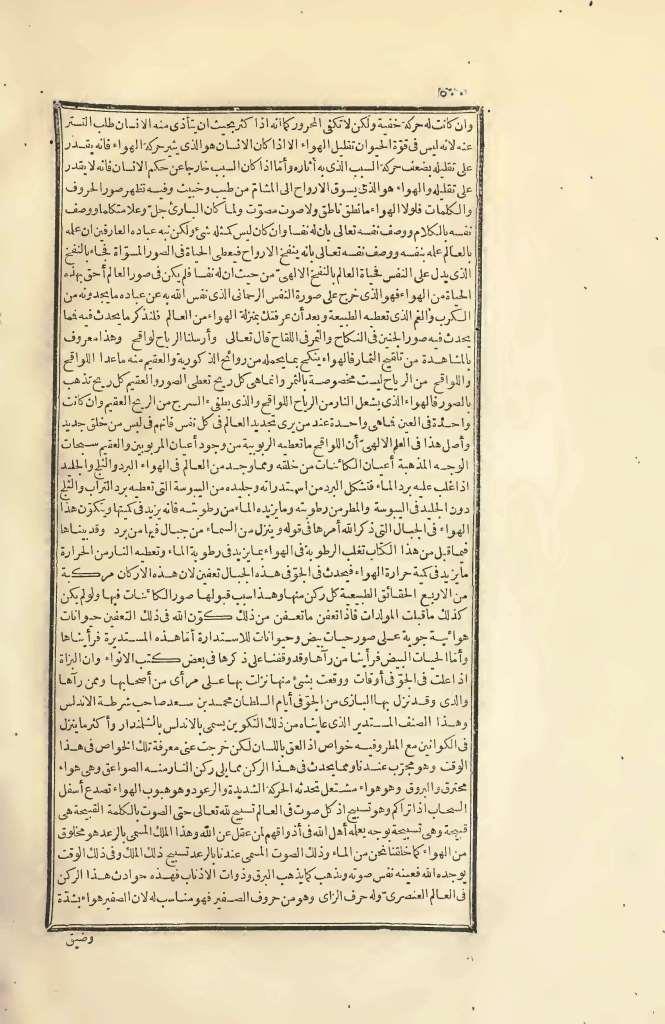 ٥٠٠
وان كانت له حركة خفية ولكن لا تكفى المحرور كما انه اذا كثر بحيث ان يتأذى منه الانسان طلب التستر
عنه لانه ليس فى قوّة الحيوان تقليل الهواء الا اذا كان الانسان هو الذى يثير حركة الهواء فانه يقدر
على تقليله بضعف حركة السبب الذى به أثاره وأمّا اذا كان السبب خارجا عن حكم الانسان فانه لا يقدر
على تقليله والهواء هو الذى يسوق الارواح الى المشامّ من طيب وخبيث وفيه تظهر صور الحروف
والكلمات فلولا الهواء ما نطق ناطق ولا صوت مصوّت ولما كان البارئ جلّ وعلا متكلما ووصف
نفسه بالكلام ووصف نفسه تعالى بان له نفسا وان كان ليس كمثله شئ ولكن نبه عباده العارفين ان علمه
بالعالم علمه بنفسه ووصف نفسه تعالى بانه ينفخ الارواح فيعطى الحياة فى الصور المسوّاة فجاء بالنفخ
الذى يدل على النفس فحياة العالم بالنفخ الالهىّ من حيث ان له نفسا فلم يكن فى صور العالم أحق بهذه
الحياة من الهواء فهو الذى خرج على صورة النفس الرحمانى الذى نفس الله به عن عباده ما يجدونه من
الكرب والغم الذى تعطيه الطبيعة وبعد أن عرفتك بمنزلة الهواء من العالم فلنذكر ما يحدث فيه فمما
يحدث فيه صور الجنين فى النكاح والثمر فى اللقاح قال تعالى وأرسلنا الرياح لواقح وهذا معروف
بالمشاهدة من تلقيح الثمار فالهواء ينكح بما يحمله من روائح الذكورية والعقيم منه ما عدا اللواقح
واللواقح من الرياح ليست مخصوصة بالثمر وانما هى كل ريح تعطى الصور والعقيم كل ريح تذهب
بالصور فالهواء الذى يشعل النار من الرياح اللواقح والذى يطفئ السرج من الريح العقيم وان كانت
واحدة فى العين فما هى واحدة عند من يرى تجديد العالم فى كل نفس فانهم فى لبس من خلق جديد
وأصل هذا فى العلم الالهىّ أن اللواقح ما تعطيه الربوبية من وجود أعيان المربوبين والعقيم سبحات
الوجه المذهبة أعيان الكائنات من خلقه ومما وجد من العالم فى الهواء البرد والثلج والجليد
اذا غلب عليه برد الماء فتشكل البرد من استدراته وجليده من اليبوسة التى تعطيه برد التراب والثلج
دون الجليد فى اليبوسة والمطر من رطوبته وما يزيده الماء من رطوبته فانه يزيد فى كميتها ويتكوّن هذا
الهواء فى الجبال التى ذكر الله أمرها فى قوله وينزل من السماء من جبال فيها من برد وقد بيناها
فيما قبل من هذا الكتاب تغلب الرطوبة فى الهواء بما يزيد فى رطوبة الماء وتعطيه النار من الحرارة
ما يزيد فى كمية حرارة الهواء فيحدث فى الجوّ فى هذه الجبال تعفين لان هذه الاركان مركبة
من الاربع الحقائق الطبيعية كل ركن منها وهذا سبب قبولها صور الكائنات فيها ولو لم يكن
كذلك ما قبلت المولدات فاذا تعفن ما تعفن من ذلك كوّن الله فى ذلك التعفين حيوانات
هوائية جوية على صور حيات بيض وحيوانات للاستدارة أما هذه المستديرة فرأيناها
وأما الحيات البيض فرأينا من رآها وقد وقفنا على ذكرها فى بعض كتب الانواء وان البزاة
اذا علت فى الجوّ فى أوقات ووقعت بشئ منها نزلت بها على مرأى من أصحابها وممن رآها
والدى وقد نزل بها البازى من الجوّ فى أيام السلطان محمد بن سعد صاحب شرقية الاندلس
وهذا الصنف المستدير الذى عايناه من ذلك التكوين يسمى بالاندلس بالشلندار وأكثر ما ينزل
فى الكوانين مع المطر وفيه خواص اذ العق باللسان لكن خرجت عنى معرفة تلك الخواص فى هذا
الوقت وهو مجرّب عندنا ومما يحدث فى هذا الركن مما يلى ركن النار منه الصواعق وهى هواء
محترق والبروق وهو هواء مشتعل تحدثه الحركة الشديدة والرعود وهو هبوب الهواء تصدع أسفل
السحاب اذا تراكم وهو تسبيح اذ كل صوت فى العالم تسبيح لله تعالى حتى الصوت بالكلمة القبيحة هى
قبيحة وهى تسبيحة بوجه يعلمه أهل الله فى أذواقهم لمن عقل عن الله وهذا الملك المسمى بالرعد هو مخلوق
من الهواء كما خلقنا نحن من الماء وذلك الصوت المسمى عندنا بالرعد تسبيح ذلك الملك وفى ذلك الوقت
يوجده الله فعينه نفس صوته ويذهب كما يذهب البرق وذوات الاذناب فهذه حوادث هذا الركن
فى العالم العنصرىّ وله حرف الزاى وهو من حروف الصفير فهو مناسب له لان الصفير هواء بشدّة
وضيق